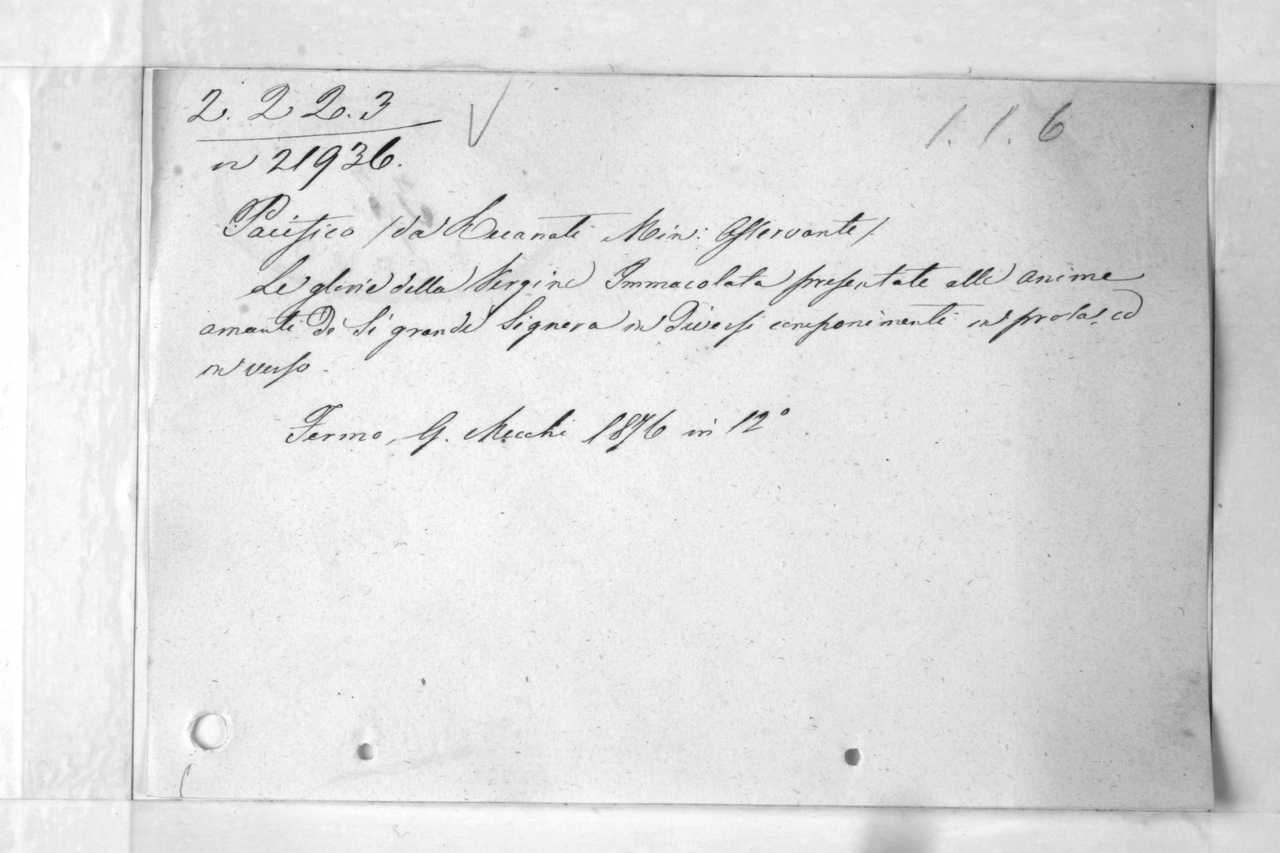 2. 2 2. 3
1. 1. 6
n 21936.
Pacifico /da Recanati Min: Osservante/
Le glorie della Vergine Immacolata presentate alle anime
amanti di sì grande Signora in diversi componimenti in prosa, ed
in verso.
Fermo, G. Mecchi 1876 in 12°